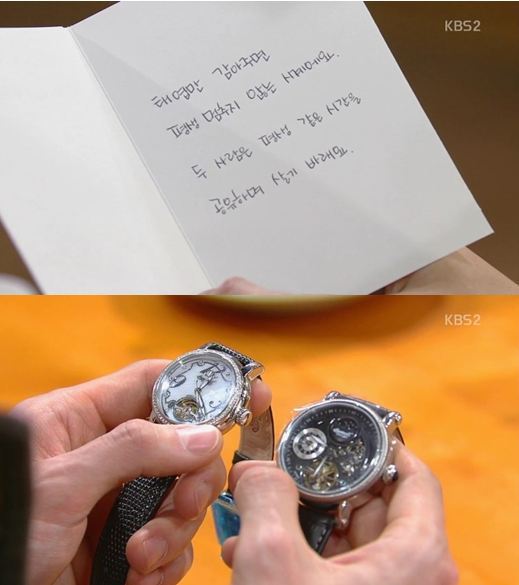 KBS2
태엽만 감아주면
평생 멈추지 않는 시계예요.
두 사람은 평생 같은 시간을
공유하며 살길 바래요.
KBS2